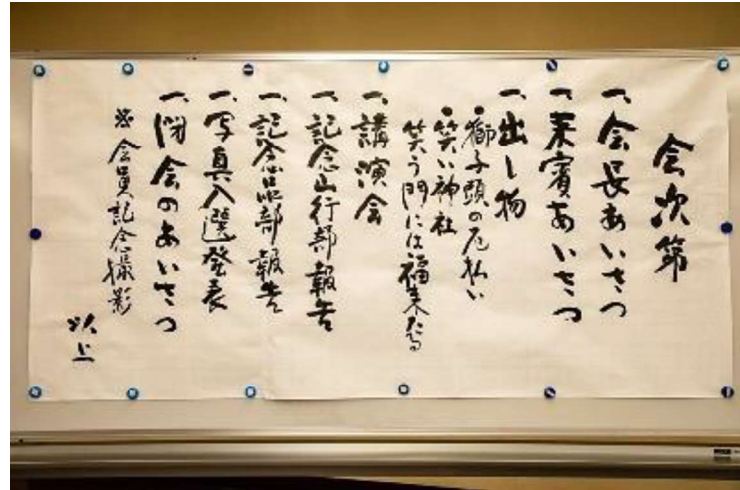 会次第
一、会長あいさつ
一、来賓あいさつ
一、出し物
・獅子頭の厄払い
・笑い神社
笑う門には福来たる
一、講演会
一、記念山行部報告
一、記念品部報告
一、写真入選発表
一、閉会のあいさつ
※会員記念撮影
以上